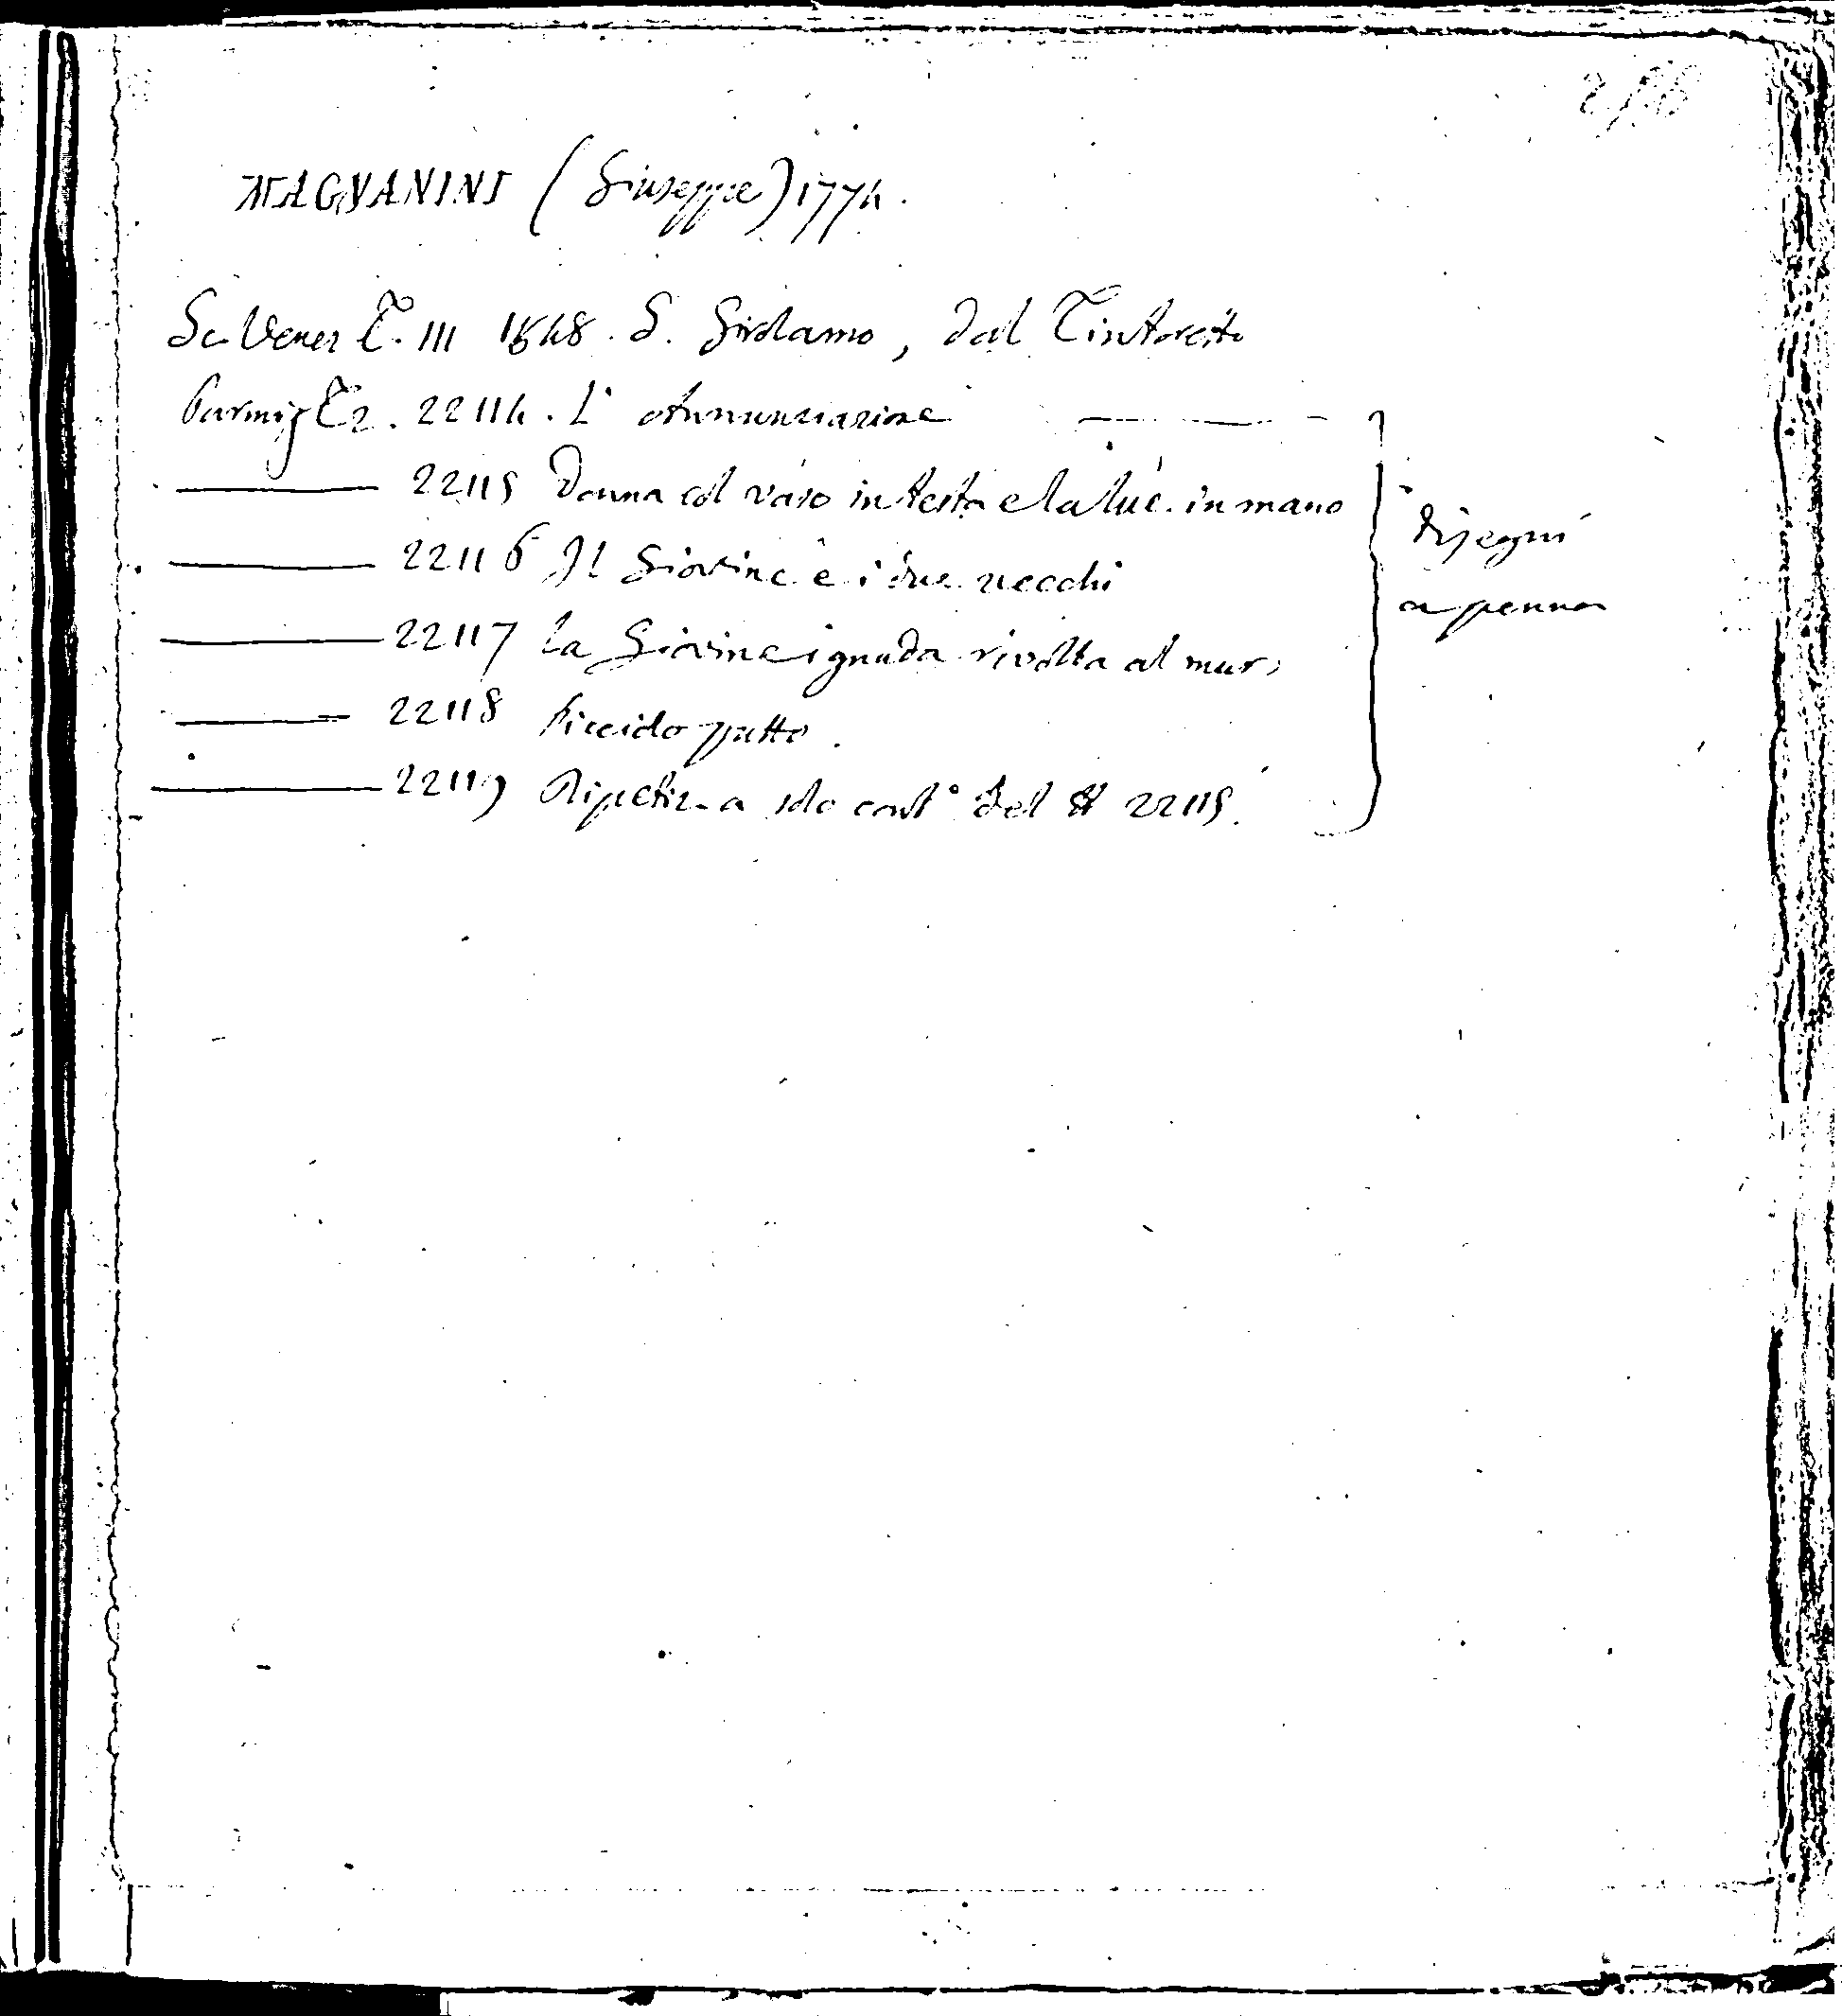 MAGNANINI (Giuseppe) 1774.
Sc. Venez T. III 1548. S. Girolamo, dal Tintoretto
Parmig T 2. 22114. L' Annunziazione
22115 Donna col vaso in testa e la luc. in mano
22116 Il Giovine e i due vecchi
22117 La Giovine ignuda rivolta al muro
22118 Piccido putto.
22119 Ripetiz. a solo cont° del N 22115.
disegni
a penna